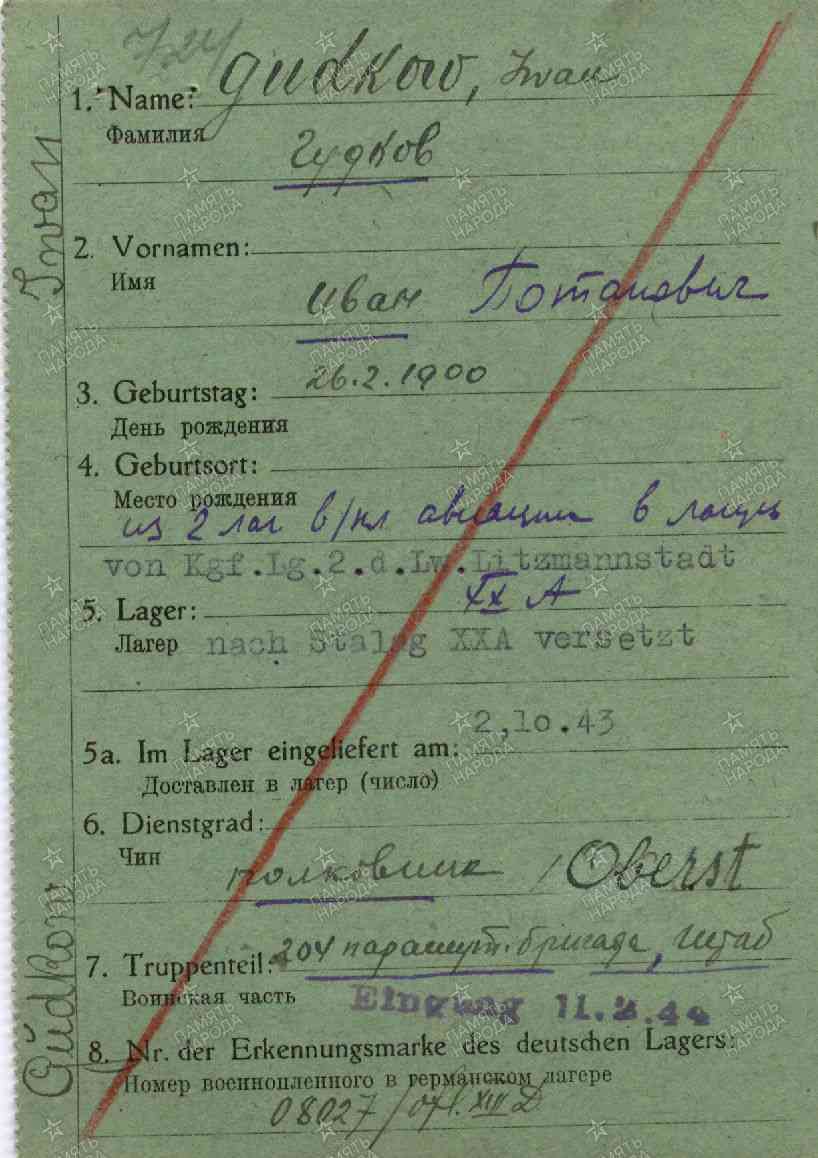 724
1. Name: Gudkow, Iwan
Фамилия
Гудков
2. Vornamen:
Имя
Иван Потапович
26.2.1900
3. Geburtstag:
День рождения
4. Geburtsort:
Место рождения
из 2 лаг в/пл авиации в лагерь
von Kgf.Lg.2.d.Lw.Litzmannstadt
XX A
5. Lager:
Лагер nach Stalag XXA versetzt
2,10.43
5a. Im Lager eingeliefert am:
Доставлен в лагер (число)
6. Dienstgrad:
Чин
полковник / Oberst
7. Truppenteil: 204 парашут. бригада, штаб
Воинская часть
Eingang 11.
8. Nr. der Erkennungsmarke des deutschen Lagers:
Номер военнопленного в германском лагере
08027 / Ofl. XIII D
Gudkow Iwan
ПАМЯТЬ НАРОДА